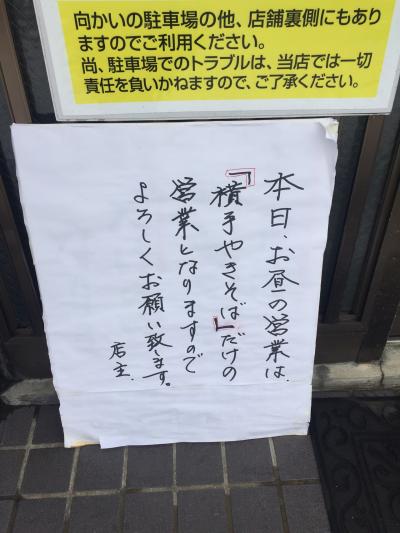 向かいの駐車場の他、店舗裏側にもあり
ますのでご利用ください。
尚、駐車場でのトラブルは、当店では一切
責任を負いかねますので、ご了承ください。
本日、お昼の営業は、
『横手やきそば』だけの
営業となりますので
よろしくお願い致します。
店主、